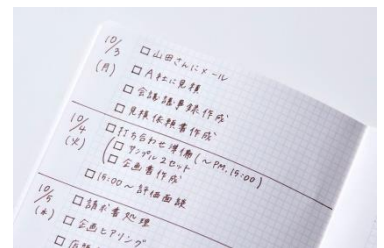 10/3
(月)
□山田さんにメール
□A社に見積
□会議議事録作成
□見積依頼書作成
10/4
(火)
□打ち合わせ準備(〜PM.15:00)
□サンプル2セット
□企画書作成
□15:00〜評価面談
10/5
(水)
□請求書処理
□企画ヒアリング